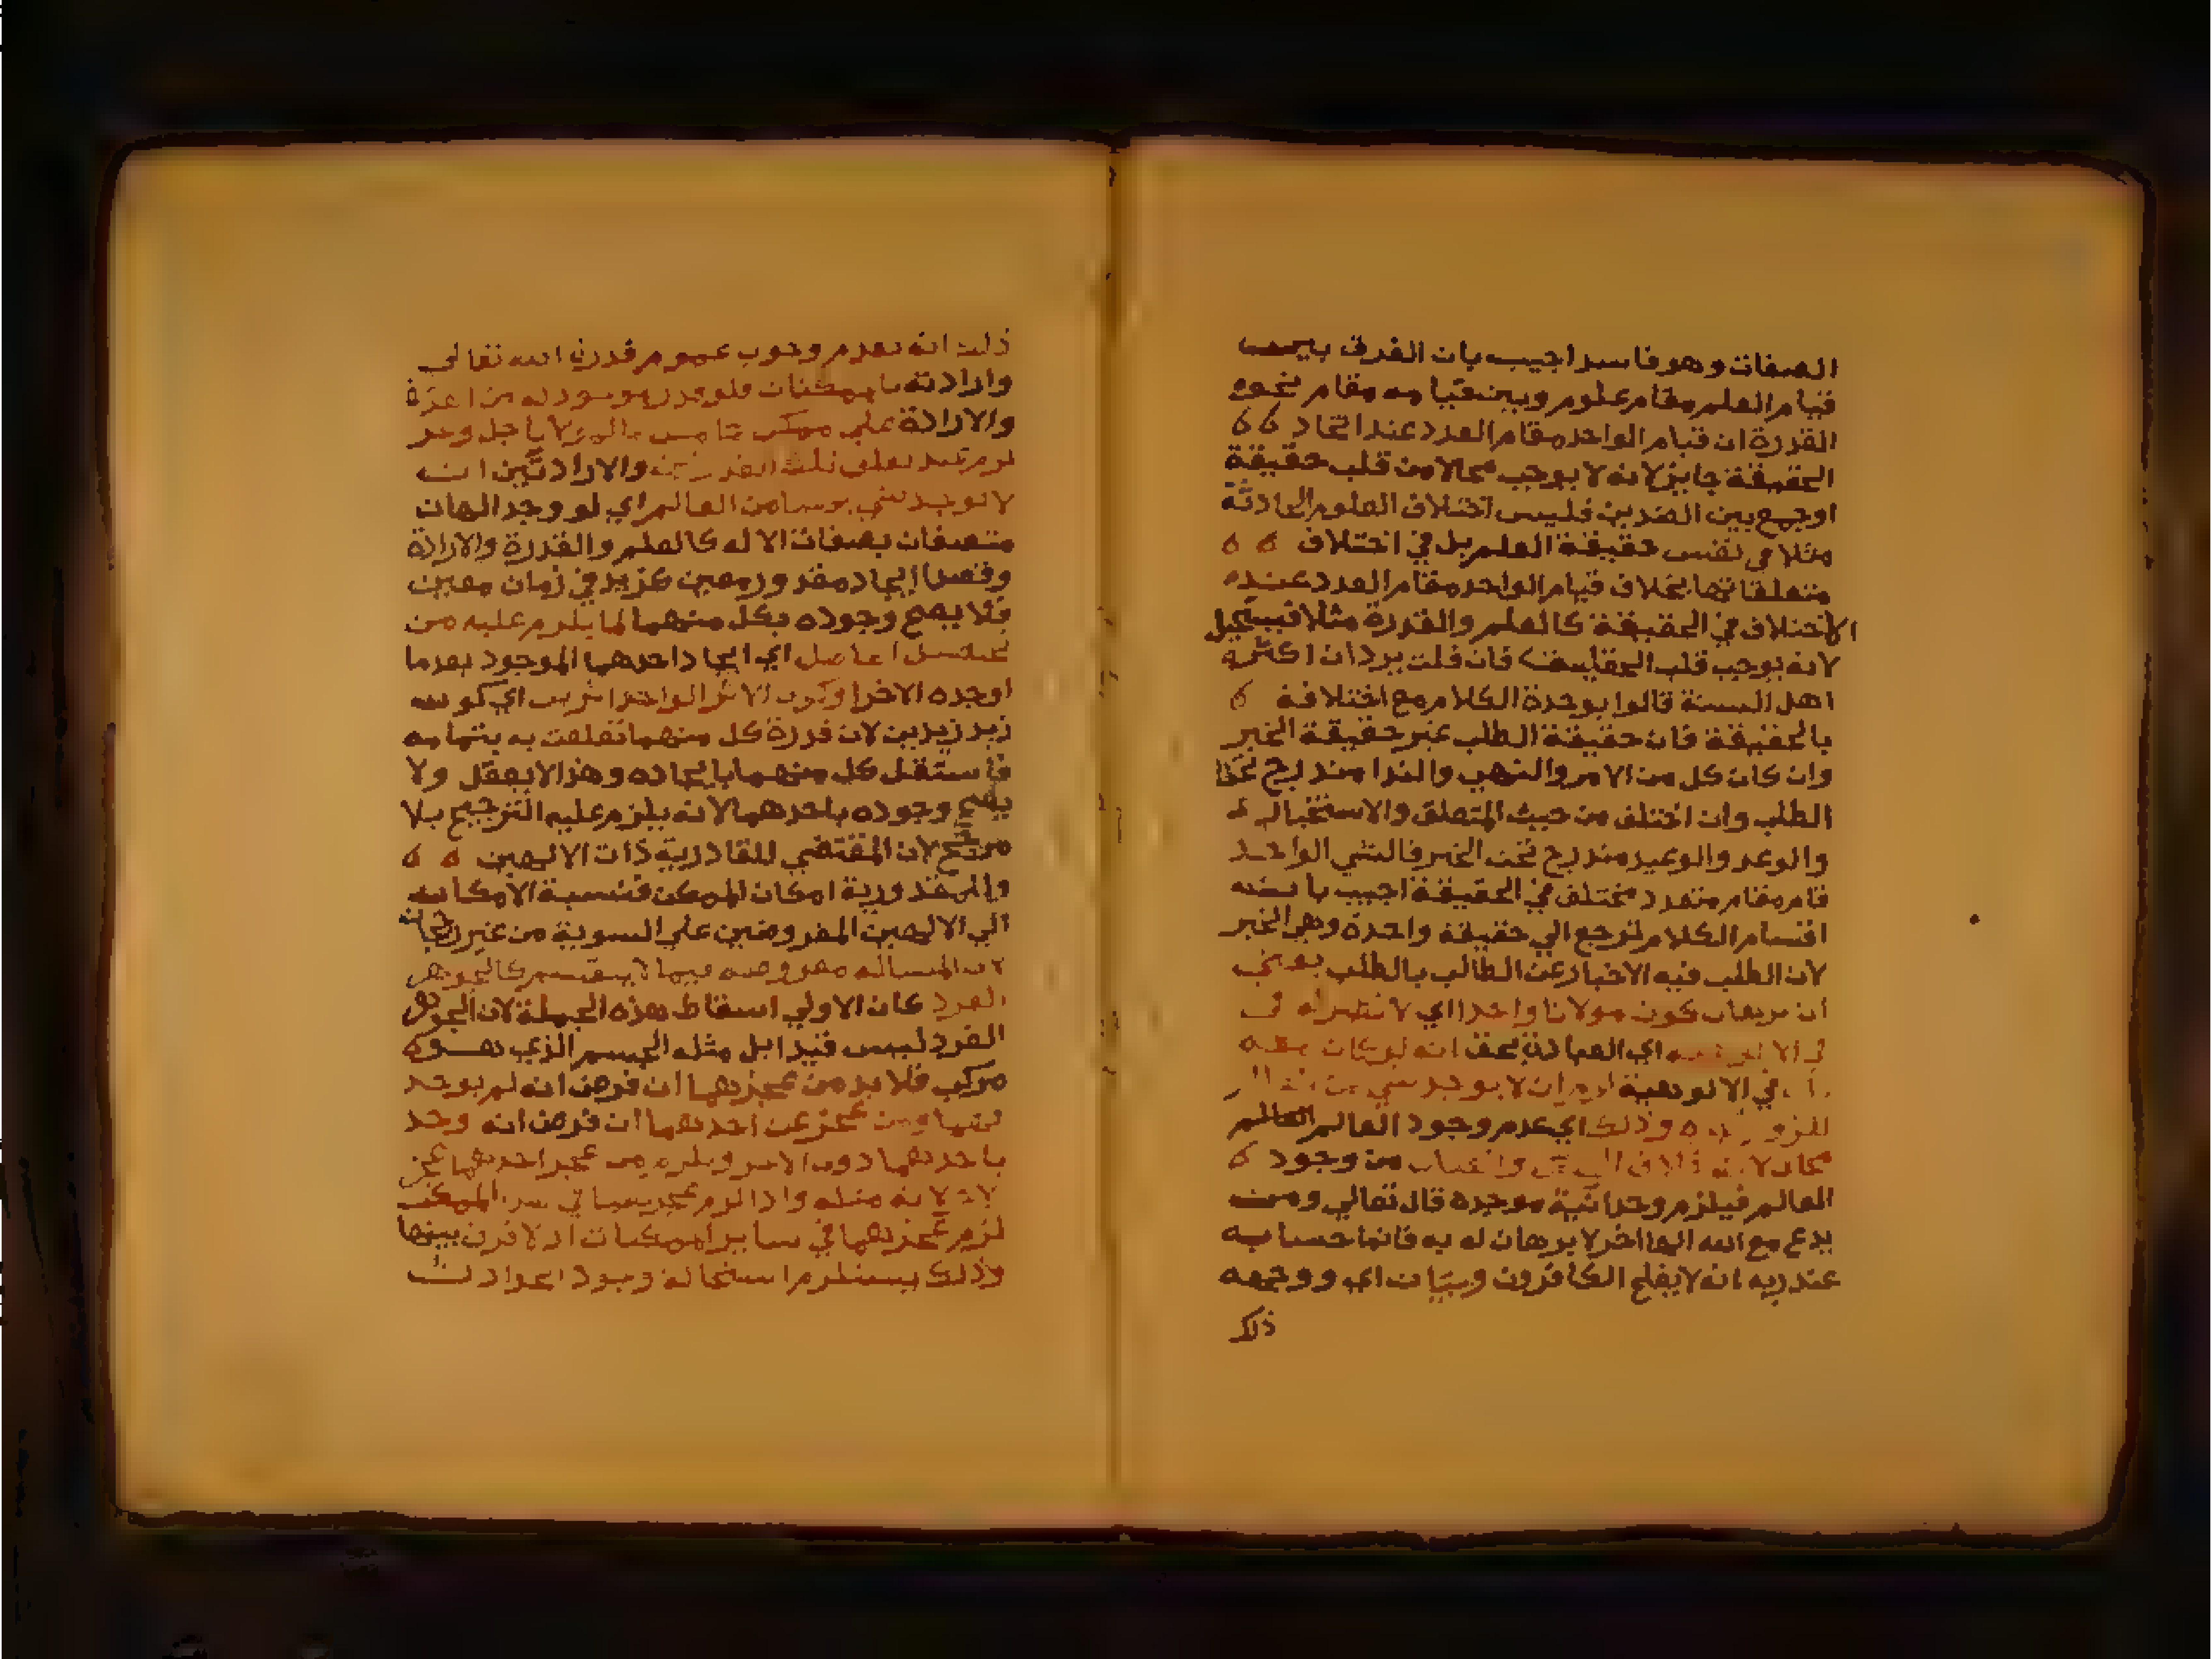 الصفات وهو فاسد اجيب بان الفرق بين
قيام العلم مقام علوم وبين قيامه مقام نحو
القدرة ان قيام الواحد مقام العدد عند اتحاد
الحقيقة جايز لانه لا يوجب محالا من قلب حقيقة
او جمع بين الضدين فليس اختلاف العلوم الحادثة
مثلا في نفس حقيقة العلم بل في اختلاف
متعلقاتها بخلاف قيام الواحد مقام العدد عند
الاختلاف في الحقيقة كالعلم والقدرة مثلا فيستحيل
لانه يوجب قلب الحقايق فان قلت يرد ان اكثر
اهل السنة قالوا بوحدة الكلام مع اختلافه
بالحقيقة فان حقيقة الطلب غير حقيقة الخبر
وان كان كل من الامر والنهي والندا مندرج تحت
الطلب وان اختلف من حيث المتعلق والاستخبار
والوعد والوعيد مندرج تحت الخبر فالشي الواحد
قام مقام متعدد مختلف في الحقيقة اجيب بان
اقسام الكلام ترجع الي حقيقة واحدة وهي الخبر
لان الطلب فيه الاخبار عن الطالب بالطلب يعني
ان برهان كون مولانا واحدا اي لا نظير له في
اي العبادة بحق انه لو كان معه
في الالوهية لزم ان لا يوجد شي من
وذلك اي عدم وجود العالم
محال لانه خلاف من وجود
العالم فيلزم وحدانية موجده قال تعالي ومن
يدع مع الله الها اخر لا برهان له به فانما حسابه
عند ربه انه لا يفلح الكافرون وبيان اي ووجه
ذلك
ذلك انه تقدم وجوب عموم قدرة الله تعالي
وارادته
والارادة علي ممكن
لزم عند تعلق تلك القدرتين والارادتين ان
لا يوجد شي من العالم اي لو وجد الهان
متصفان بصفات الاله كالعلم والقدرة والارادة
وقصدا ايجاد مقدور معين كزيد في زمان معين
فلا يصح وجوده بكل منهما لما يلزم عليه من
تحصيل الحاصل اي ايجاد احدهما الموجود بعدما
اوجده الاخر او كون الاثر الواحد اثرين اي كون
زيد زيدين لان قدرة كل منهما تعلقت به بتمامه
فاستقل كل منهما بايجاده وهذا لا يعقل ولا
يصح وجوده باحدهما لانه يلزم عليه الترجيح بلا
مرجح لان المقتضي للقادرية ذات الالهين
والمقدورية امكان الممكن فنسبة الامكان
الي الالهين المفروضين علي السوية من غير رجحان
لان المسالة مفروضة فيما لا ينقسم كالجوهر
الفرد كان الاولي اسقاط هذه الجملة لان الجوهر
الفرد ليس قيدا بل مثله الجسم الذي هو
مركب فلا بد من عجزهما ان فرض انه لم يوجد
بهما ومن عجز عن احدهما ان فرض انه وجد
باحدهما دون الاخر ويلزم من عجز احدهما عجز
لانه مثله واذا لزم الممكن
لزم عجزهما في ساير الممكنات اذ لا فرق بينهما
وذلك يستلزم استحالة وجود الحوادث